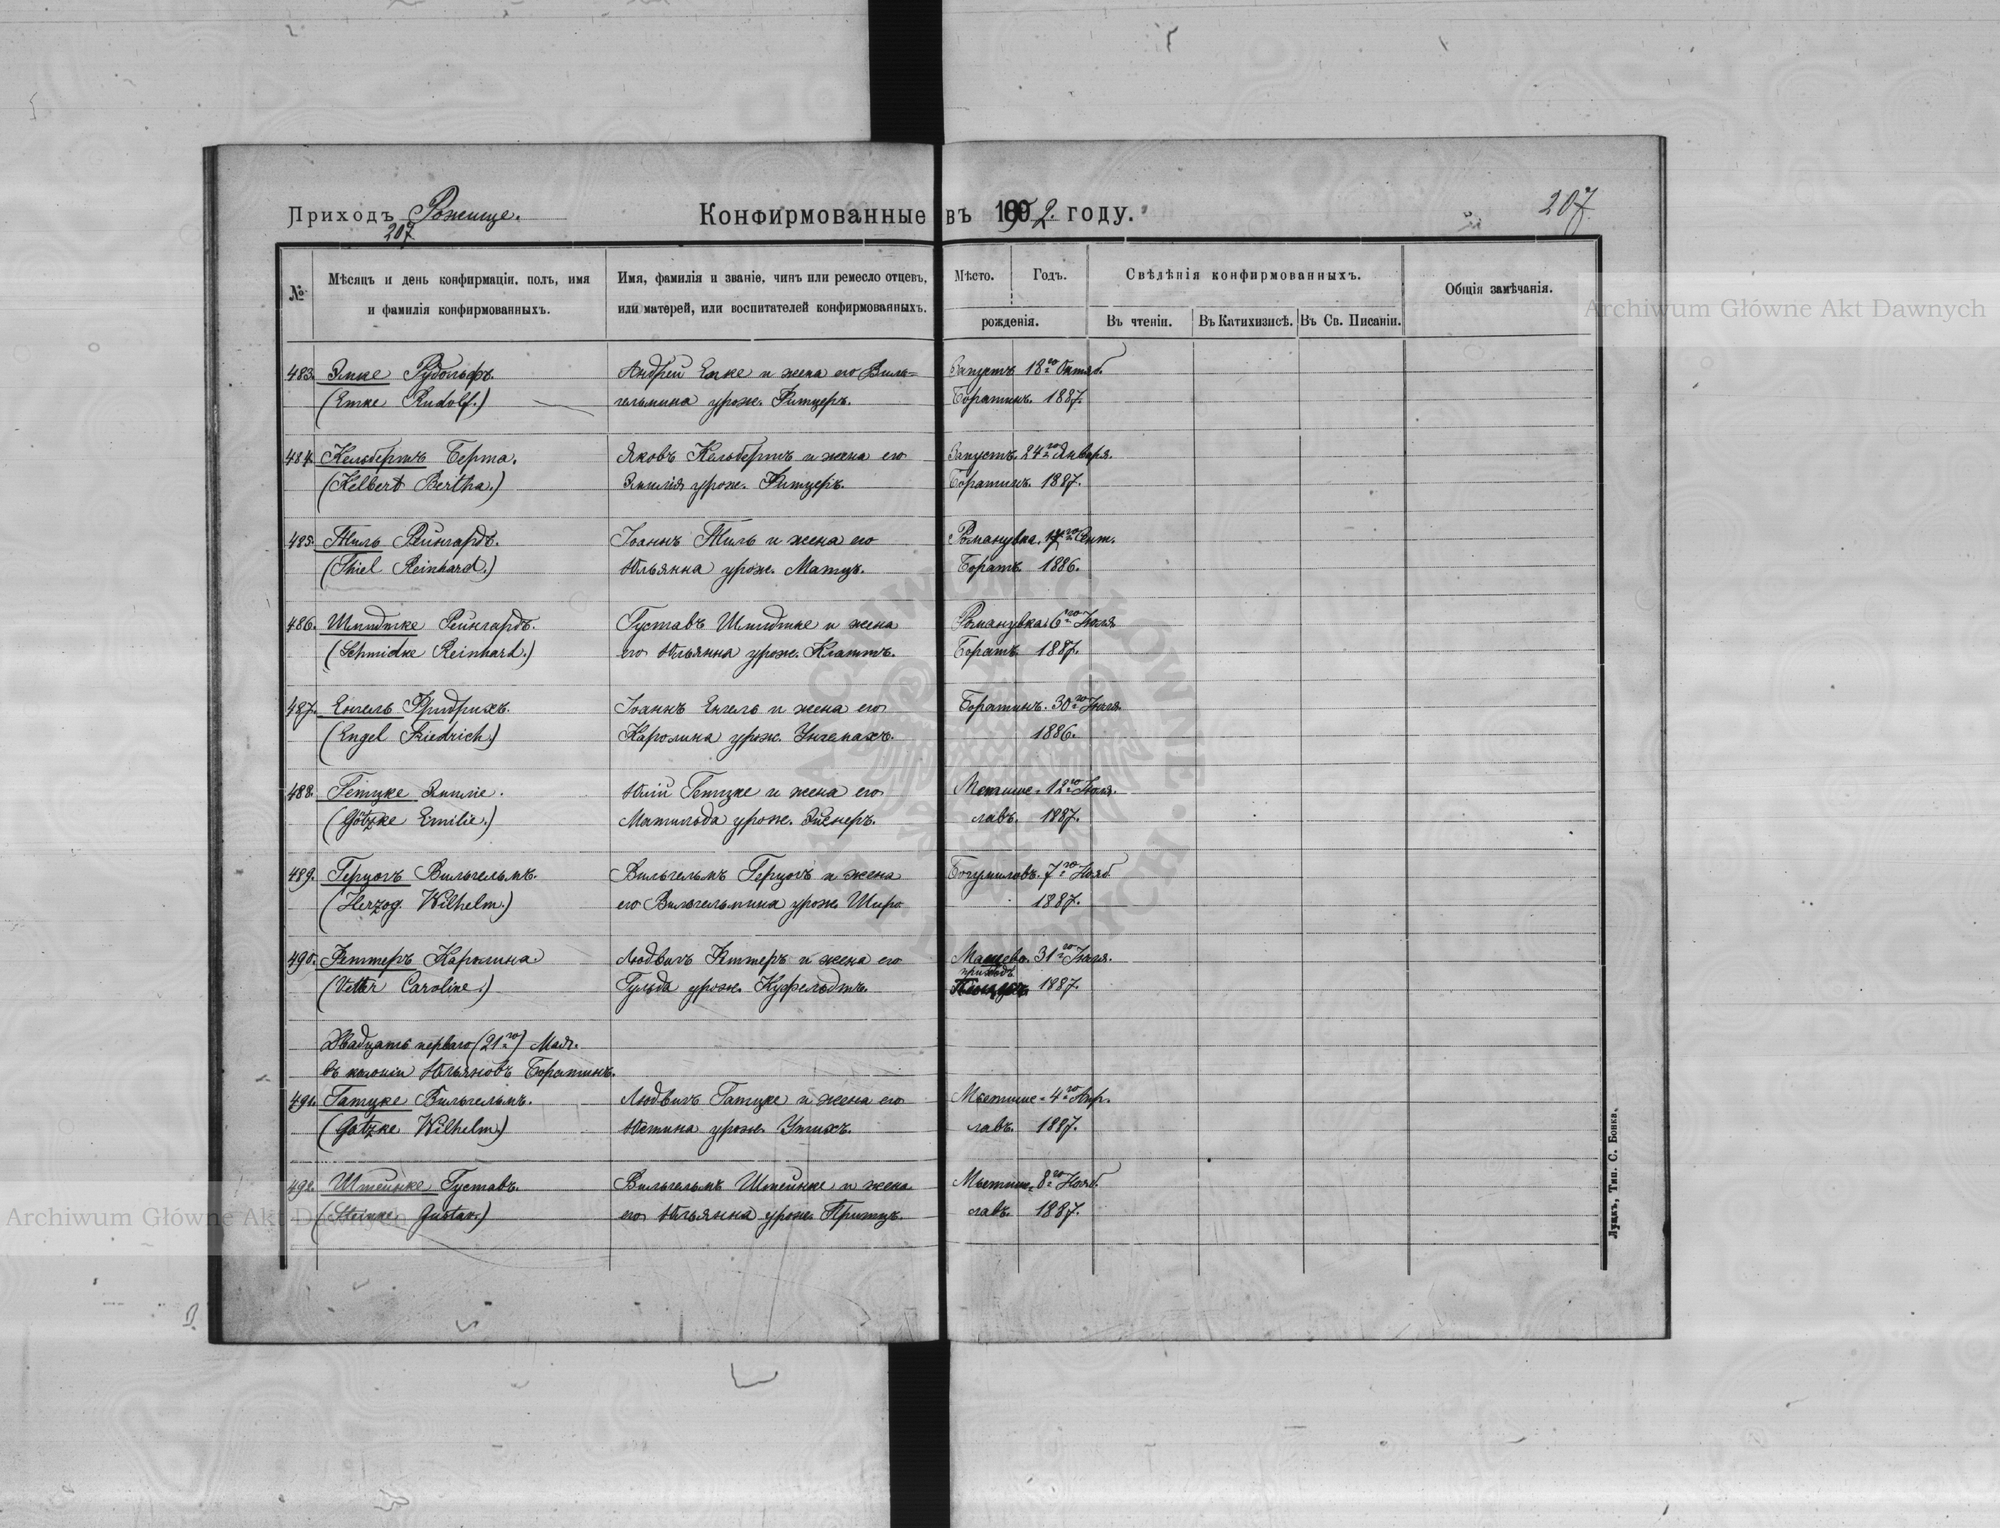 Приходъ Рожище.
207
Конфирмованные въ 1902. году.
207
№
Мѣсяцъ и день конфирмаціи, полъ, имя
и фамилія конфирмованныхъ.
Имя, фамилія и званіе, чинъ или ремесло отцевъ,
или матерей, или воспитателей конфирмованныхъ.
Мѣсто.
Годъ.
рожденія.
Свѣдѣнія конфирмованныхъ.
Въ чтеніи.
Въ Катихизисѣ.
Въ Св. Писаніи.
Общія замѣчанія.
483. Эмке Рудольфъ. Андрей Емке и жена его Виль= Запустъ 18го Октяб.
(Emke Rudolf.) гельмина урож. Фитцеръ. Боратинъ. 1887.
484. Кельбертъ Берта. Яковъ Кельбертъ и жена его Запустъ. 24го Января.
(Kelbert Bertha.) Эмилія урож. Фитцеръ. Боратинъ. 1887.
485. Тиль Рейнгардъ. Іоаннъ Тиль и жена его Романувка. 17го Сент.
(Thiel Reinhard.) Юльянна урож. Матцъ. Борат. 1886.
486. Шмидтке Рейнгардъ. Густавъ Шмидтке и жена Романувка. 6го Іюля
(Schmidke Reinhard.) его Юльянна урож. Клаттъ. Борат. 1887.
487. Енгель Фридрихъ. Іоаннъ Енгель и жена его Боратинъ. 30го Іюля.
(Engel Friedrich.) Каролина урож. Унгемахъ. 1886.
488. Гетцке Эмиліе. Юлій Гетцке и жена его 12го
(Götzke Emilie.) Матильда урож. лавъ. 1887.
489. Герцогъ Вильгельмъ. Вильгельмъ Герцогъ и жена Богумиловъ. 7го Нояб.
(Herzog Wilhelm.) его Вильгельмина урож. 1887.
490. Феттеръ Каролина. Людвигъ Феттеръ и жена его 31го Іюля.
(Vetter Caroline.) Гульда урож. Куфельдтъ. приходъ 1887.
Двадцать перваго (21го) Мая.
въ колоніи Юльяновъ Боратинъ.
491. Гатцке Вильгельмъ. Людвигъ Гатцке и жена его Мстише= 4го Апр.
(Gatzke Wilhelm.) Юстина урож. Утихъ. лавъ. 1887.
492. Штейнке Густавъ. Вильгельмъ Штейнке и жена Мстише= 8го Нояб.
(Steinke Gustav.) его Юльянна урож. Притцъ. лавъ. 1887.
Луцкъ, Тип. С. Бонка.
Archiwum Główne Akt Dawnych
Archiwum Główne Akt Dawnych
ARCHIWUM GŁÓWNE AKT DAWNYCH